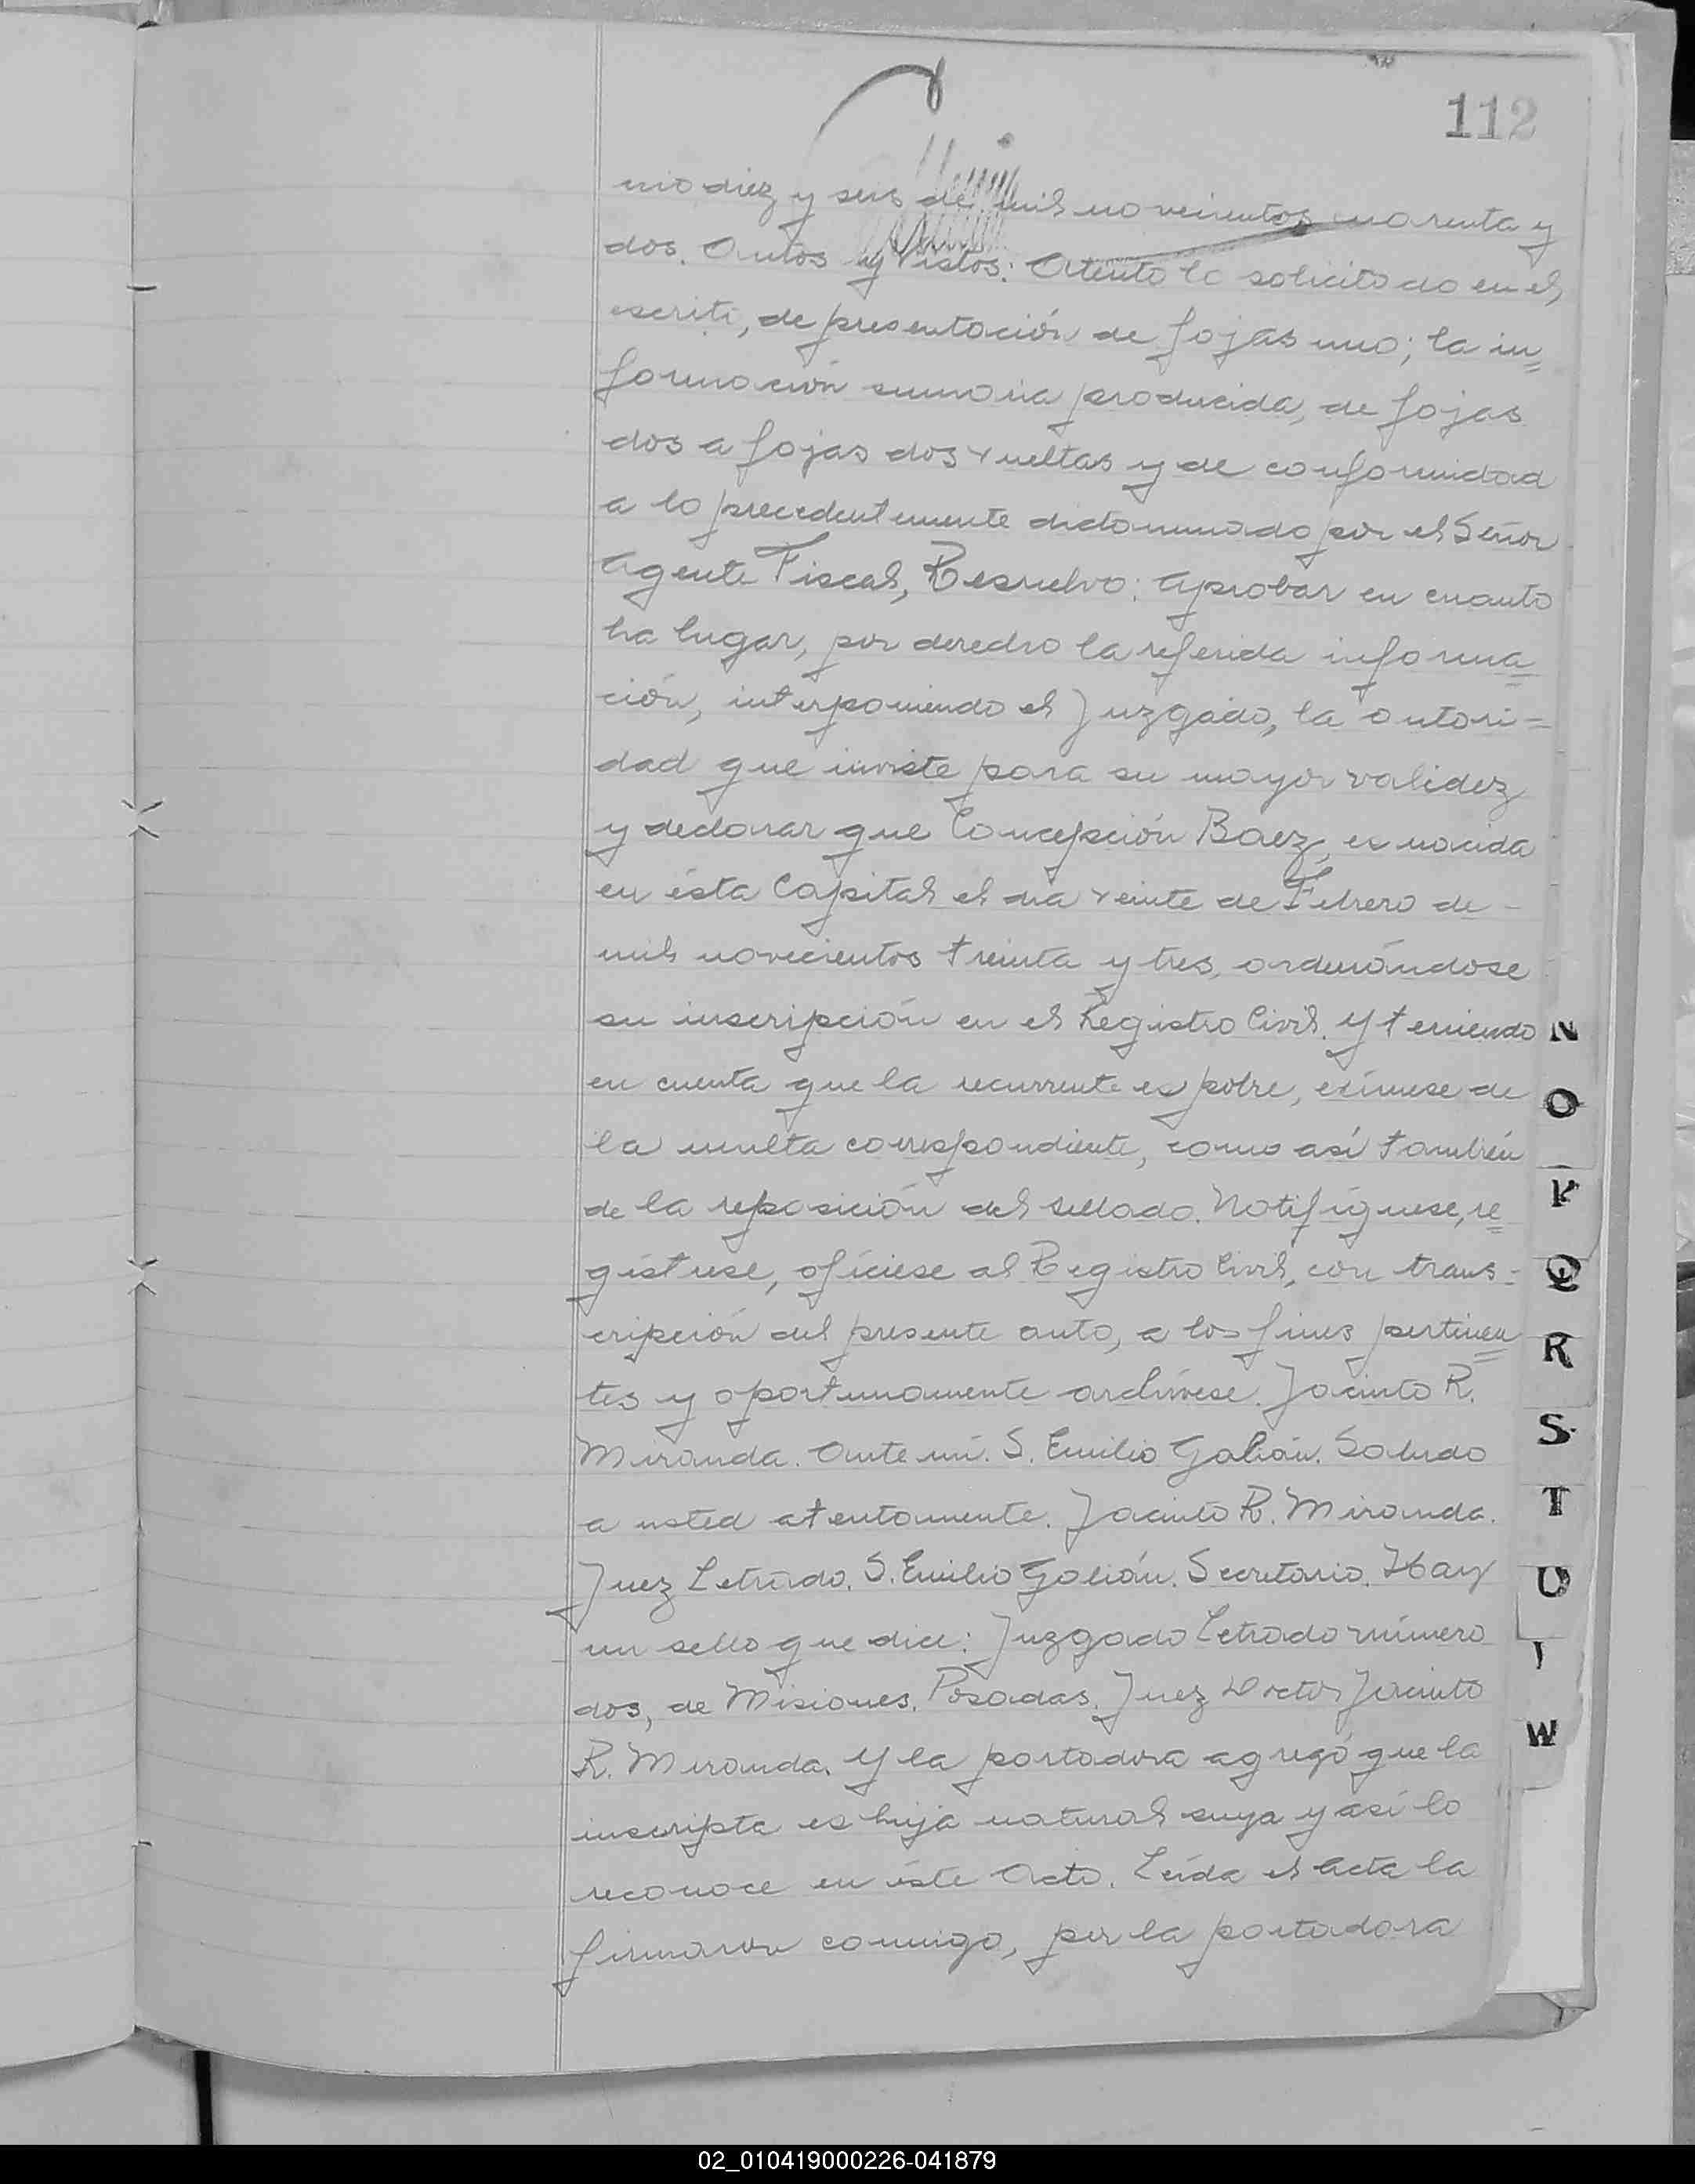 112
nio diez y seis de mil novecientos cuarenta y
dos. Autos y Vistos: Atento lo solicitado en el
escrito, de presentación de fojas uno; la in=
formación sumaria producida, de fojas
dos a fojas dos vueltas y de conformidad
a lo precedentemente dictaminado por el Señor
Agente Fiscal, Resuelvo: Aprobar en cuanto
ha lugar, por derecho la referida informa=
ción, interponiendo el Juzgado, la autori=
dad que inviste para su mayor validez
y declarar que Concepción Baez, es nacida
en ésta Capital el día veinte de Febrero de -
mil novecientos treinta y tres, ordenándose
su inscripción en el Registro Civil. Y teniendo
en cuenta que la recurrente es pobre, exímese de
la multa correspondiente, como así también
de la reposición del sellado. Notifíquese, re=
gístrese, ofíciese al Registro Civil, con trans=
cripción del presente auto, a los fines pertinen=
tes y oportunamente archívese. Jacinto R.
Miranda. Ante mí. S. Emilio Galián. Saludo
a usted atentamente. Jacinto R. Miranda.
Juez Letrado. S. Emilio Galián. Secretario. Hay
un sello que dice: Juzgado Letrado número
dos, de Misiones. Posadas. Juez Doctor Jacinto
R. Miranda. Y la portadora agregó que la
inscripta es hija natural suya y así lo
reconoce en éste Acto. Leída el Acta la
firmaron conmigo, por la portadora
N
O
P
Q
R
S
T
U
W
02_010419000226-041879